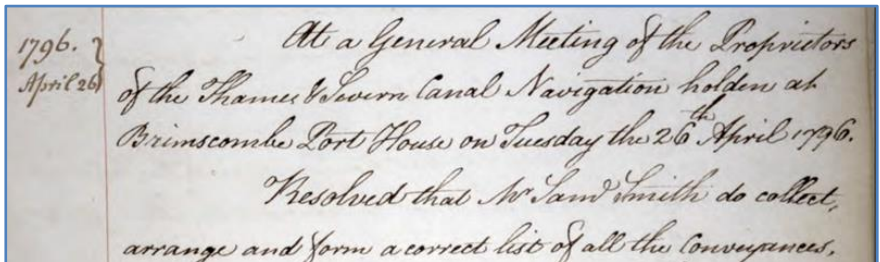 1796.
April 26
At a General Meeting of the Proprietors
of the Thames & Severn Canal Navigation holden at
Brimscombe Port House on Tuesday the 26th April 1796.
Resolved that Mr Saml Smith do collect,
arrange and form a correct list of all the Conveyances,